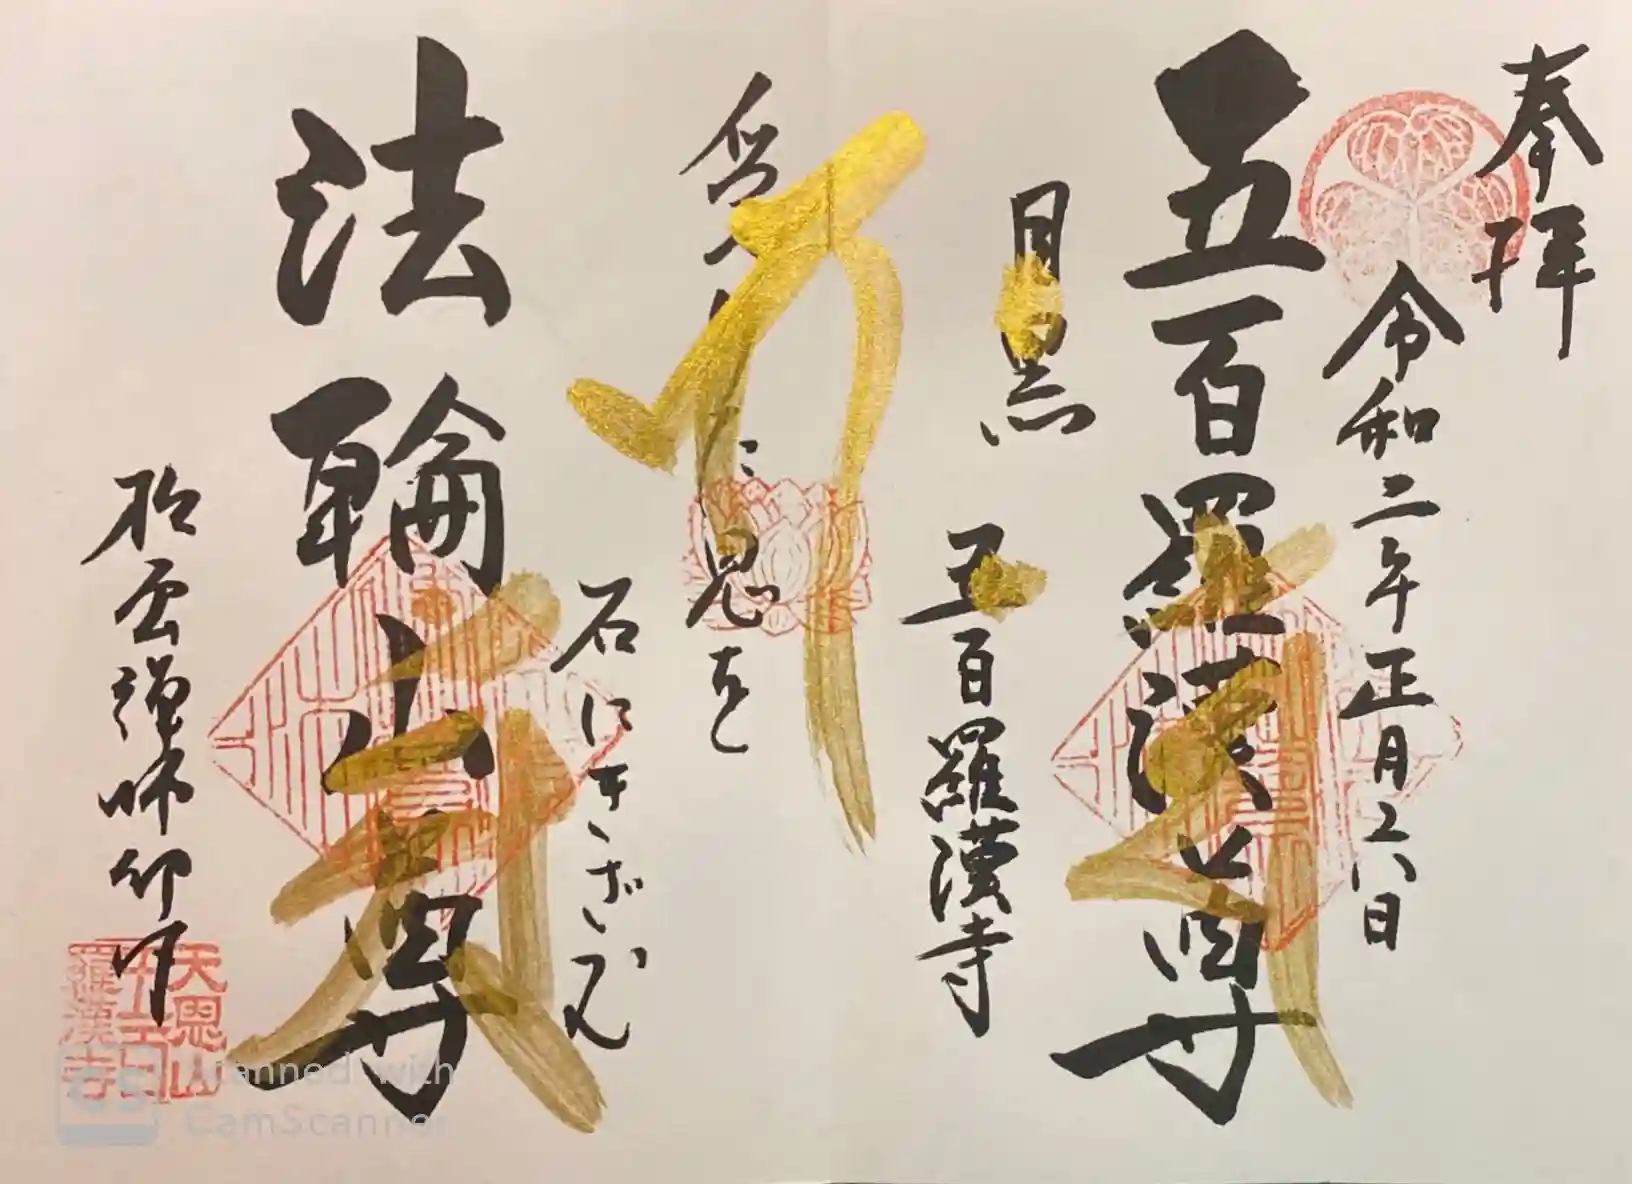 奉拝
令和二年正月二八日
五百羅漢尊
目黒
五百羅漢寺
恩を
石にきざむ
法輪
尊
松雲禅師
天恩山
五百
羅漢寺
Scanned with
CamScanner